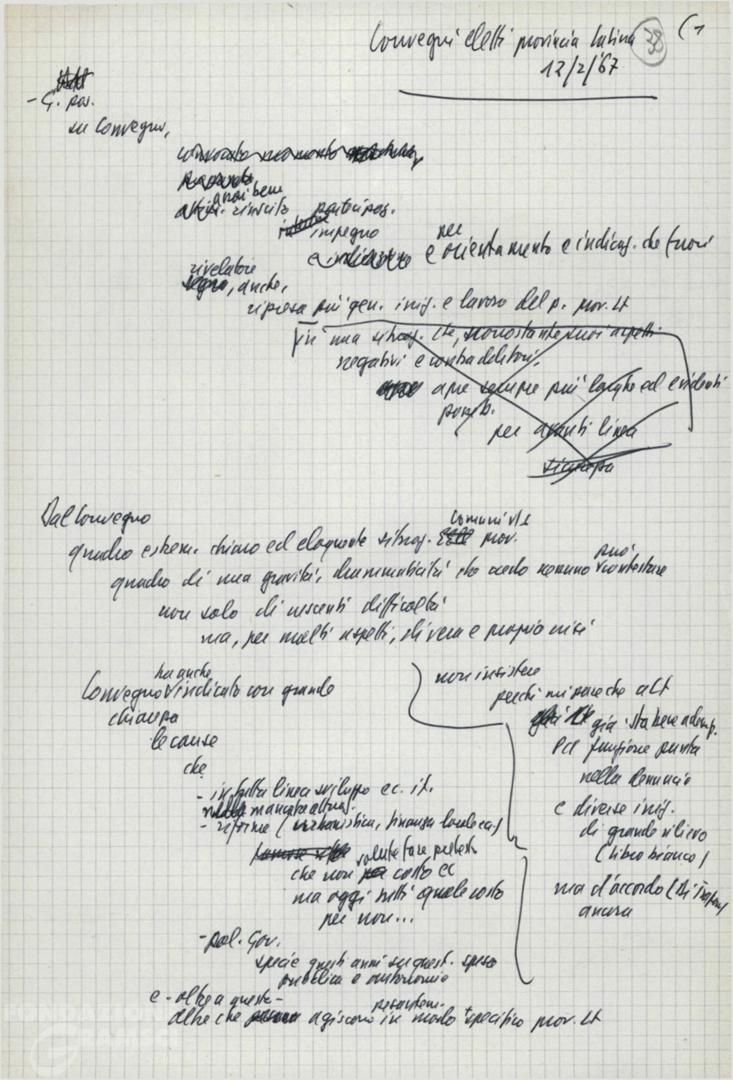 Convegni eletti provincia Latina
12/2/67
- G. pos.
su Convegno,
anzi bene
riuscito partecipaz.
impegno
per
e orientamento e indicaz. che fuori
rivelatore
segno, anche,
ripresa più gen. iniz. e lavoro del p. prov. Lt
in una situaz. che, nonostante suoi aspetti
negativi e contraddittori,
apre sempre più larghe ed evidenti
possib.
per avanti linea
Dal Convegno
Comuni
quadro estrem. chiaro ed eloquente situaz. prov.
quadro di una gravità, drammaticità che credo nessuno può contestare
non solo di crescenti difficoltà
ma, per molti aspetti, di vera e propria crisi
ha anche
Convegno indicato con grande
chiarezza
le cause
che
- in tutta linea sviluppo ec. it.
mancata attuaz.
- riforme (urbanistica, finanza locale ec)
voluto fare pretesto
che non costo ec
ma oggi tutti quale costo
per non...
- pol. Gov.
specie questi anni su quest. spesa
pubblica e autonomie
e - oltre a queste -
pesantem.
altre che agiscono in modo specifico prov. Lt
non insistere
perché mi pare che a Lt
già sta bene ademp.
PCI funzione punta
nella denuncia
e diverse iniz.
di grande rilievo
(libro bianco)
ma d'accordo
ancora
FONDAZIONE
GRAMSCI